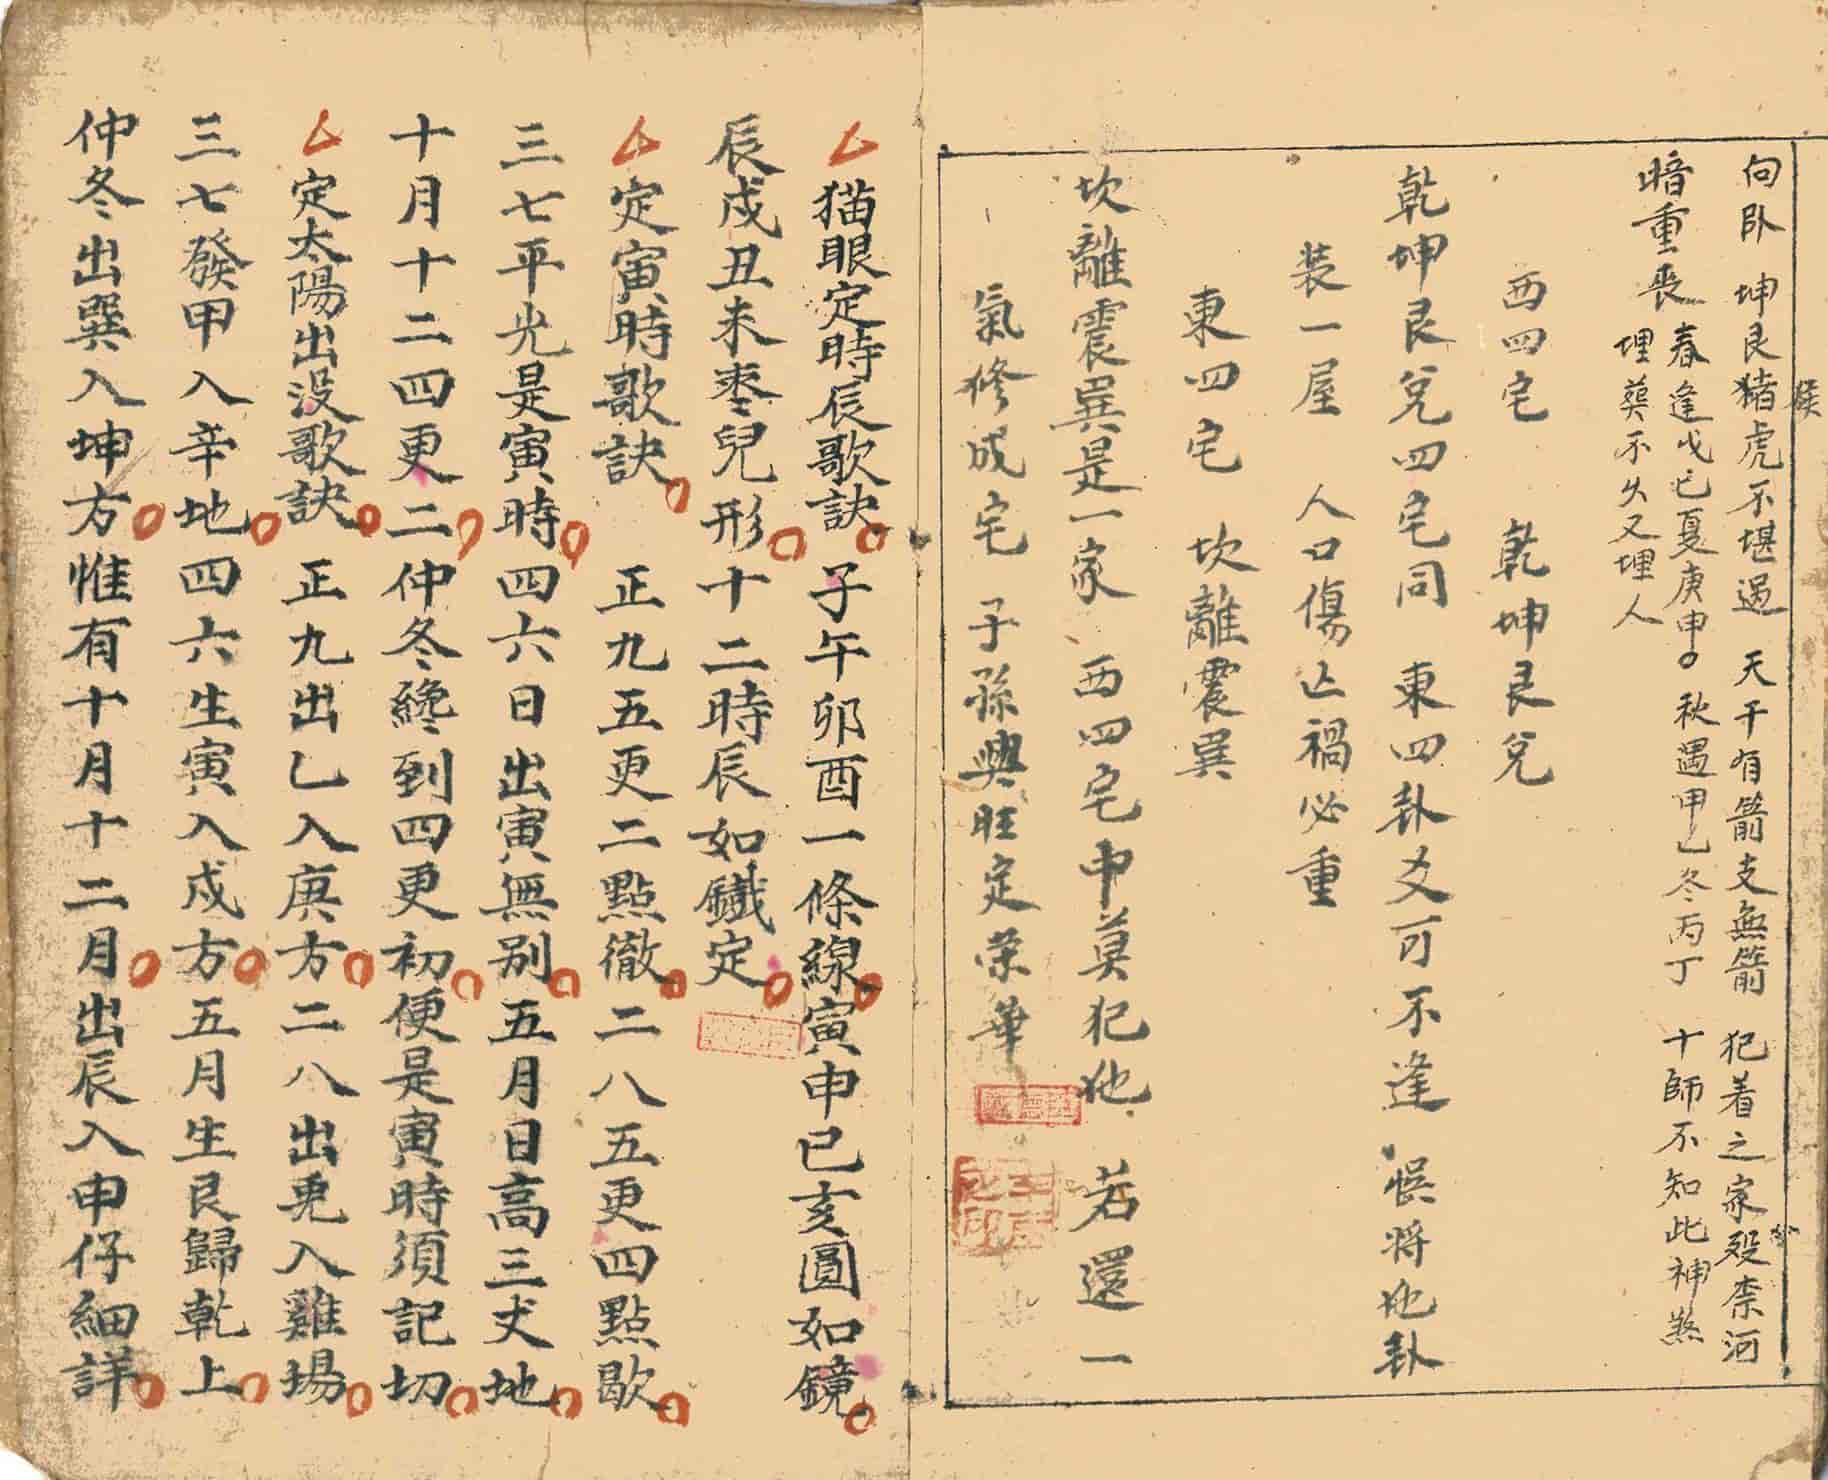 猴
向臥 坤艮猪虎不堪過 天干有箭支無箭 犯着之家殁柰河
暗重丧
春逢戊己夏庚申 秋遇甲乙冬丙丁 十師不知此神煞
埋葬不久又埋人
西四宅 乾坤艮兌
乾坤艮兌四宅同 東四卦爻可不逢 悮将他卦
装一屋 人口傷亡禍必重
東四宅 坎離震巽
坎離震巽是一家 西四宅中莫犯他 若還一
氣修成宅 子孫興旺定荣華
猫眼定時辰歌訣 子午卯酉一條線寅申巳亥圓如鏡
辰戌丑未枣兒形十二時辰如鐵定
定寅時歌訣 正九五更二點徹二八五更四點歇
三七平光是寅時四六日出寅無别五月日高三丈地
十月十二四更二仲冬纔到四更初便是寅時須記切
定太陽出没歌訣 正九出乙入庚方二八出兎入雞場
三七發甲入辛地四六生寅入戌方五月生艮歸乾上
仲冬出巽入坤方惟有十月十二月出辰入申仔細詳